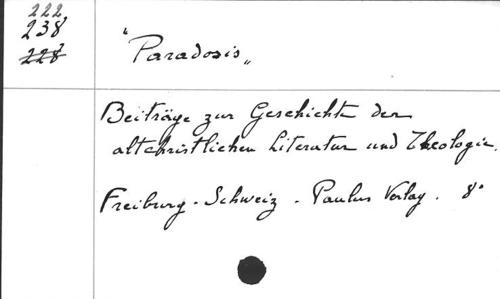 222,
238,
228
"Paradosis"
Beiträge zur Geschichte der
altchristlichen Literatur und Theologie.
Freiburg - Schweiz - Paulus Verlag. 8°